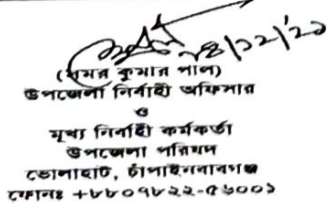 (সমর কুমার পাল)
উপজেলা নির্বাহী অফিসার
ও
মূখ্য নির্বাহী কর্মকর্তা
উপজেলা পরিষদ
ভোলাহাট, চাঁপাইনবাবগঞ্জ
ফোনঃ +৮৮০৭৮২২-৫৬০০১